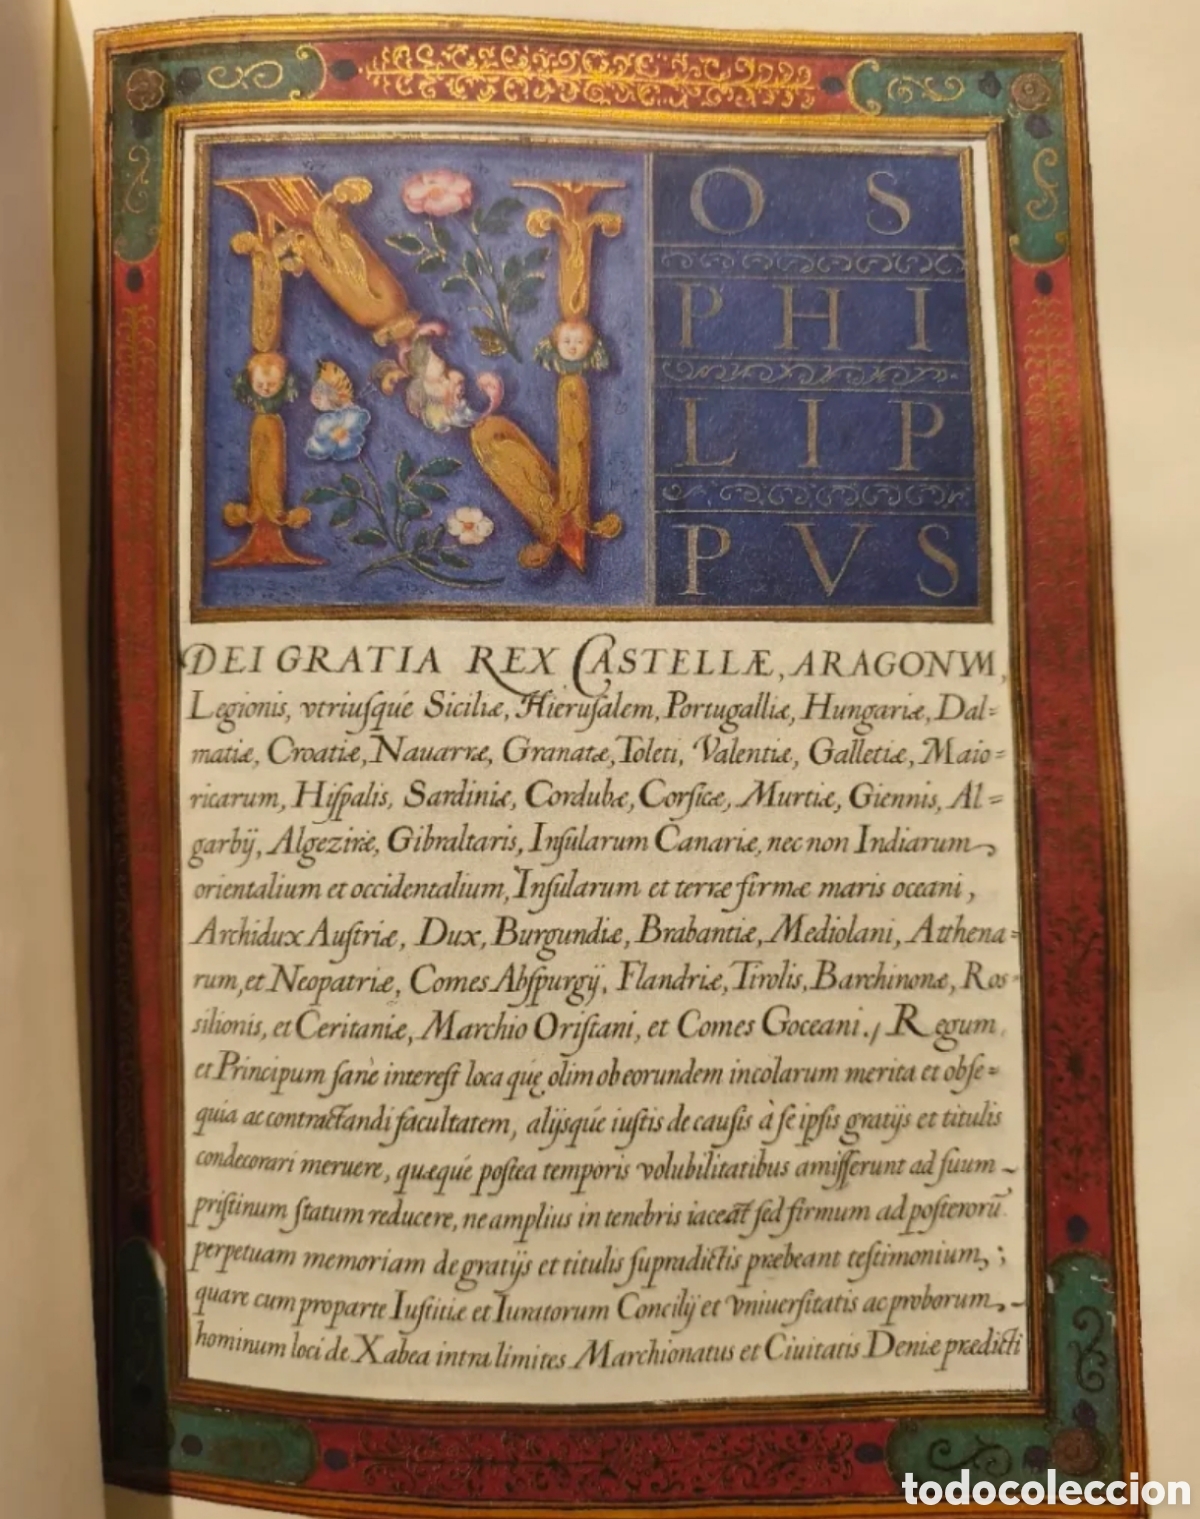 NOS
PHI
LIP
PVS
DEI GRATIA REX CASTELLÆ, ARAGONVM,
Legionis, vtriuſqué Siciliæ, Hieruſalem, Portugalliæ, Hungariæ, Dal=
matiæ, Croatiæ, Nauarræ, Granatæ, Toleti, Valentiæ, Galletiæ, Maio=
ricarum, Hiſpalis, Sardiniæ, Cordubæ, Corſicæ, Murtiæ, Giennis, Al=
garbij, Algeziræ, Gibraltaris, Inſularum Canariæ, nec non Indiarum
orientalium et occidentalium, Inſularum et terræ firmæ maris oceani,
Archidux Auſtriæ, Dux, Burgundiæ, Brabantiæ, Mediolani, Atthena=
rum, et Neopatriæ, Comes Abſpurgij, Flandriæ, Tirolis, Barchinonæ, Ros=
silionis, et Ceritaniæ, Marchio Oriſtani, et Comes Goceani./ Regum
et Principum ſanè intereſt loca quę olim ob eorundem incolarum merita et obſe=
quia ac contractandi facultatem, alijsqúe iuſtis de cauſis à ſe ipſis gratijs et titulis
condecorari meruere, quæqué poſtea temporis volubilitatibus amiſſerunt ad ſuum
priſtinum ſtatum reducere, ne amplius in tenebris iaceat ſed firmum ad poſterorū
perpetuam memoriam de gratijs et titulis ſupradictis præbeant teſtimonium, ;
quare cum pro parte Iuſtitiæ et Iuratorum Concilij et vniuerſitatis ac proborum
hominum loci de Xabea intra limites Marchionatus et Ciuitatis Deniæ prædicti
todocoleccion